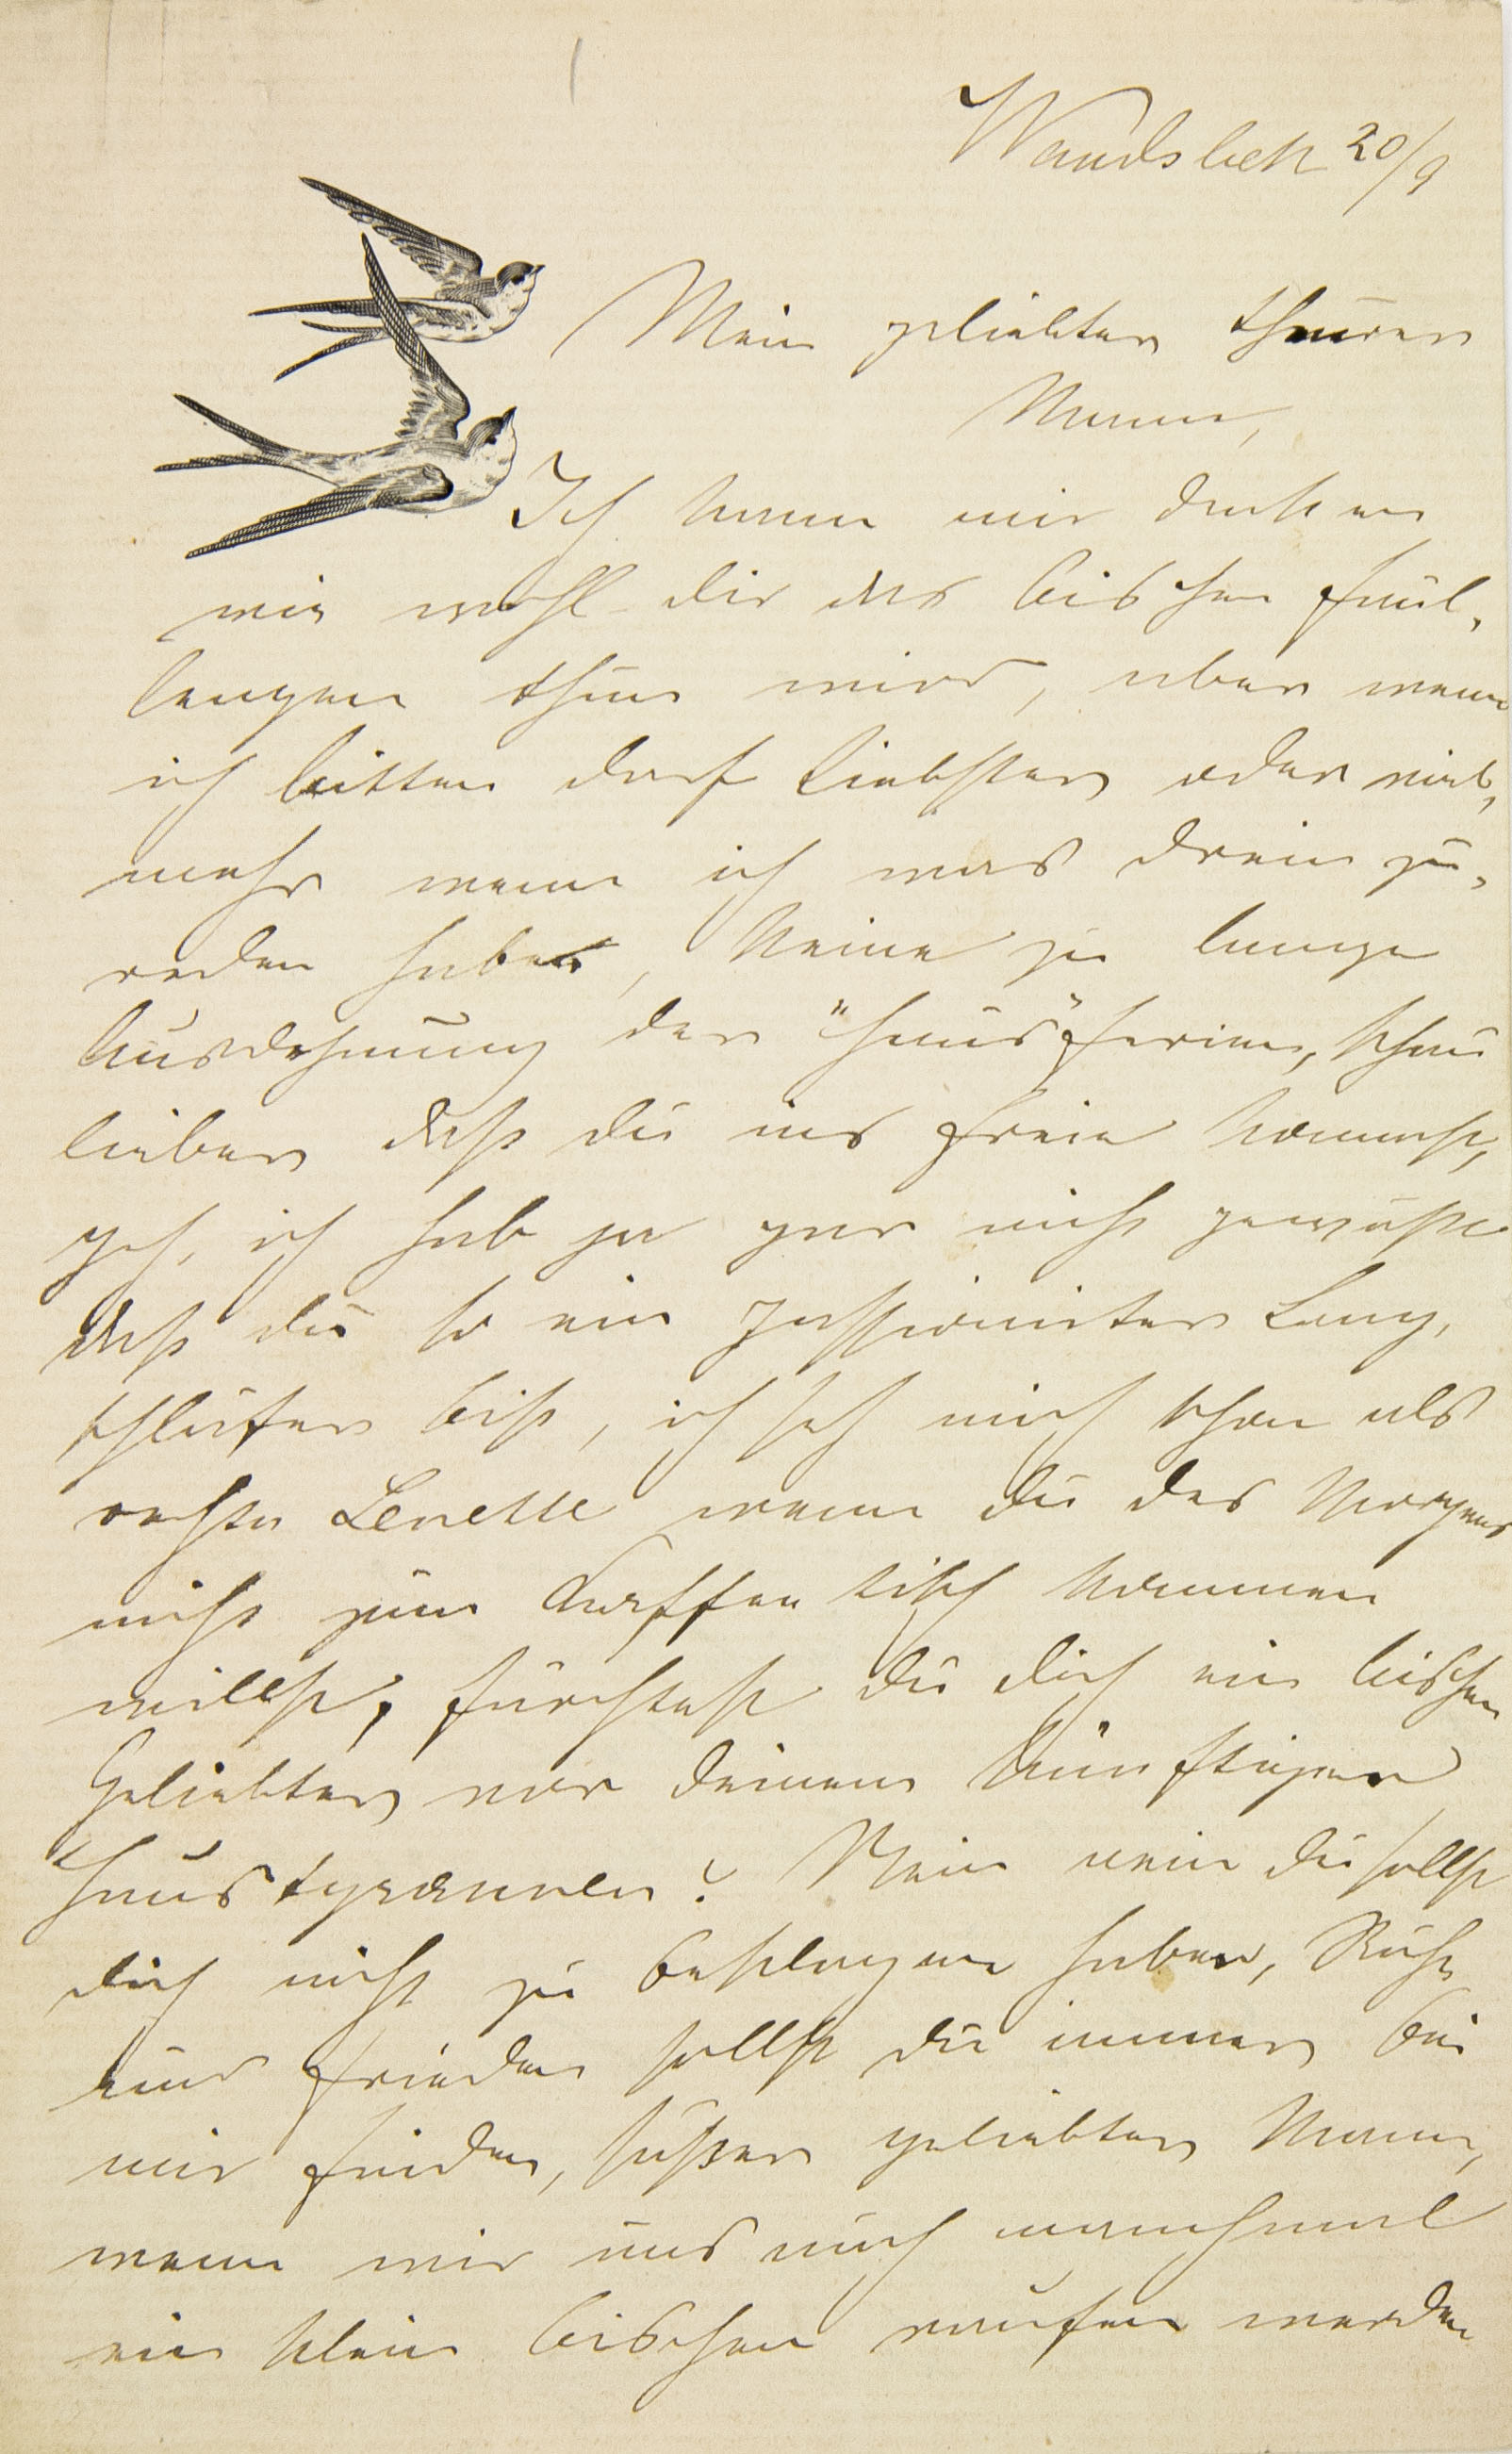 Wandsbek 20/9
Mein geliebter theurer
Mann,
Ich kann mir denken
wie wohl dir das bischen faul,
lenzen thun wird, aber wenn
ich bitten darf Liebster oder viel,
mehr wenn ich was drein zu,
reden habe, keine zu lange
Ausdehnung der "Haus"ferien, schau
lieber daß du ins Freie kommst,
geh, ich hab ja gar nicht gewußt
daß du so ein passionirter Lang,
schläfer bist, ich seh mich schon als
rechte Lenette wenn du des Morgens
nicht zum Kaffeetisch kommen
willst, fürchtest du dich ein bischen
Geliebter vor deinem künftigen
Haustyrannen? Nein nein du sollst
dich nicht zu beklagen haben, Ruhe
und Frieden sollst du immer bei
mir finden, süßer geliebter Mann,
wenn wir uns auch manchmal
ein klein bischen raufen werden